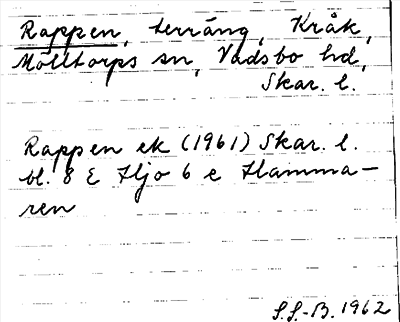 Rappen, terräng, Kråk,
Mölltorps sn, Vadsbo hd,
Skar. l.
Rappen ek (1961) Skar. l.
bl. 8 E Hjo 6 e Hamma-
ren
S.S.-B. 1962